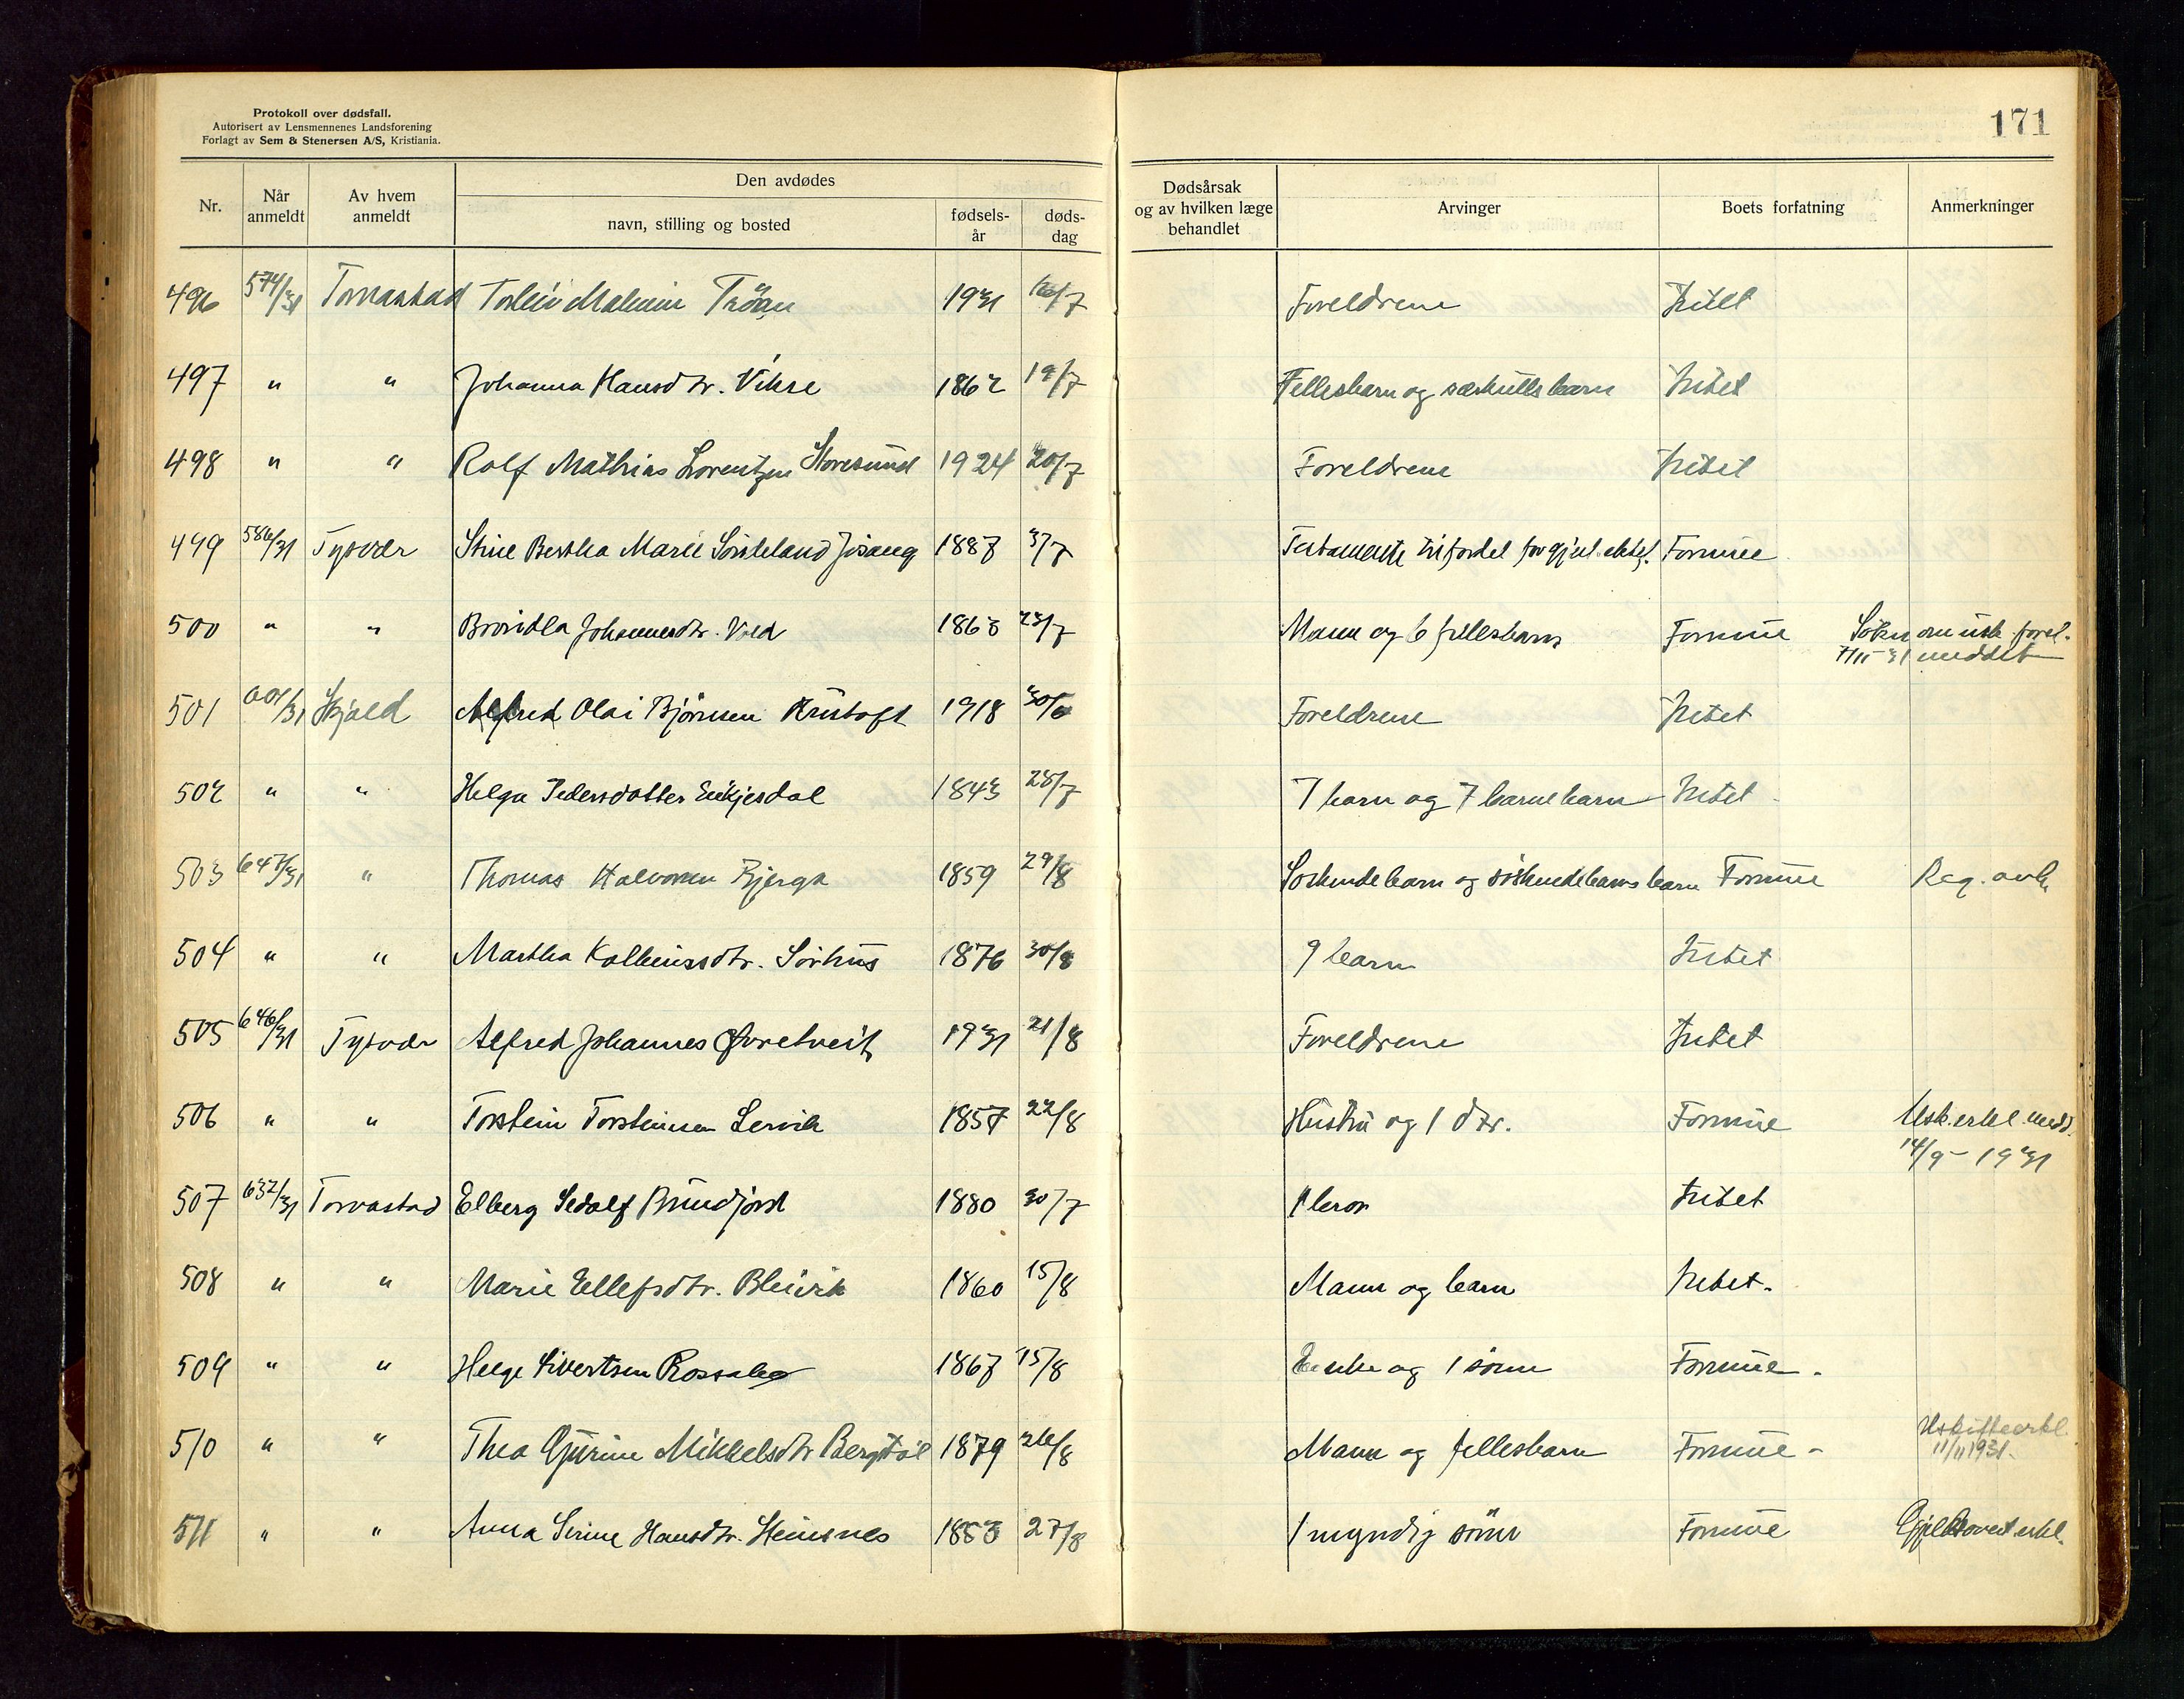 Protokoll over dødsfall.
Autorisert av Lensmennenes Landsforening
Forlagt av Sem & Stenersen A/S, Kristiania.
171
Nr. Når anmeldt Av hvem anmeldt Den avdødes navn, stilling og bosted fødsels-år døds-dag Dødsårsak og av hvilken læge behandlet Arvinger Boets forfatning Anmerkninger
496 574/31 Torvastad Torleiv Malmin 1931 16/7 Foreldrene Intet
497 " " Johanna Hansdtr. Vikse 1862 19/7 Fellesbarn og særkullsbarn Intet
498 " " Rolf Mathias Lorentzen Storesund 1924 20/7 Foreldrene Intet
499 586/31 Tysvær Stine Bertha Marie 1887 3/7 Testamente til fordel for gjenl. ektef. Formue
500 " " Johannesdtr. 1863 23/7 Mann og 6 fellesbarn Formue Søkn om usk. forel.
7/11-31 meddelt
501 601/31 Skjold Alfred Olai Bjørnsen 1918 30/6 Foreldrene Intet
502 " " Helga Pedersdatter Eikjesdal 1843 28/7 7 barn og 7 barnebarn Intet
503 647/31 " Thomas Halvorsen Bjerga 1859 29/8 Søskendebarn og søskendebarns barn Formue Reg. avh.
504 " " Martha Kolbeinsdtr. Sørhus 1876 30/8 9 barn Intet
505 646/31 Tysvær Alfred Johannes Øvretveit 1931 21/8 Foreldrene Intet
506 " " Torstein Torsteinsen Lervik 1857 22/8 Hustru og 1 dtr. Formue Usk.erkl. medd.
14/9-1931
507 632/31 Torvastad Elberg Sedolf 1880 30/7 1 bror Intet
508 " " Marie Ellefsdtr. Bleivik 1860 15/8 Mann og barn Intet.
509 " " Helge Sivertsen Rossabø 1867 15/8 Enke og 1 sønn Formue.
510 " " Thea Gurine Mikkelsdtr 1879 26/8 Mann og fellesbarn Formue - Uskifteerkl.
11/11 1931.
511 " " Anna Serine Hansdtr. Steinsnes 1853 27/8 1 myndig sønn Formue Gjeldsovert.erkl.